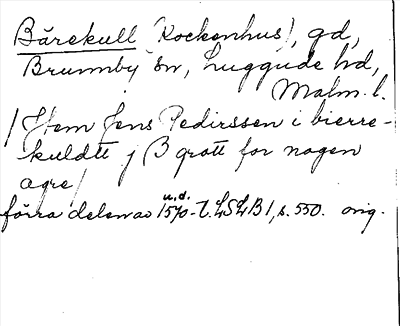 Bärekull (Kockenhus), gd,
Brunnby sn, Luggude hd,
Malm. l.
/Hem Jens Pedirssen i bierre-
kuldtt j B grott for nogen
agre/
u.d.
förra delen av 1570-t. LSLB 1, s. 550. orig.